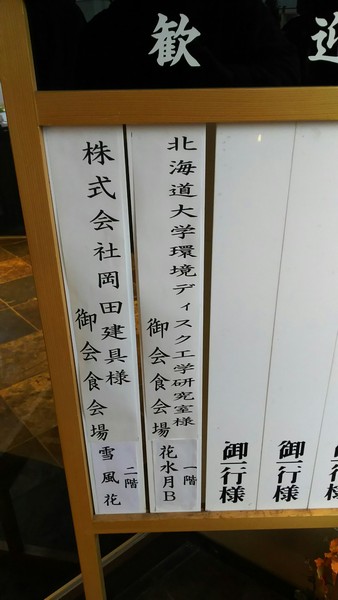 歓迎
御一行様
御一行様
御一行様
北海道大学環境ディスク工学研究室様
御会食会場
一階
花水月B
株式会社岡田建具様
御会食会場
二階
雪風花